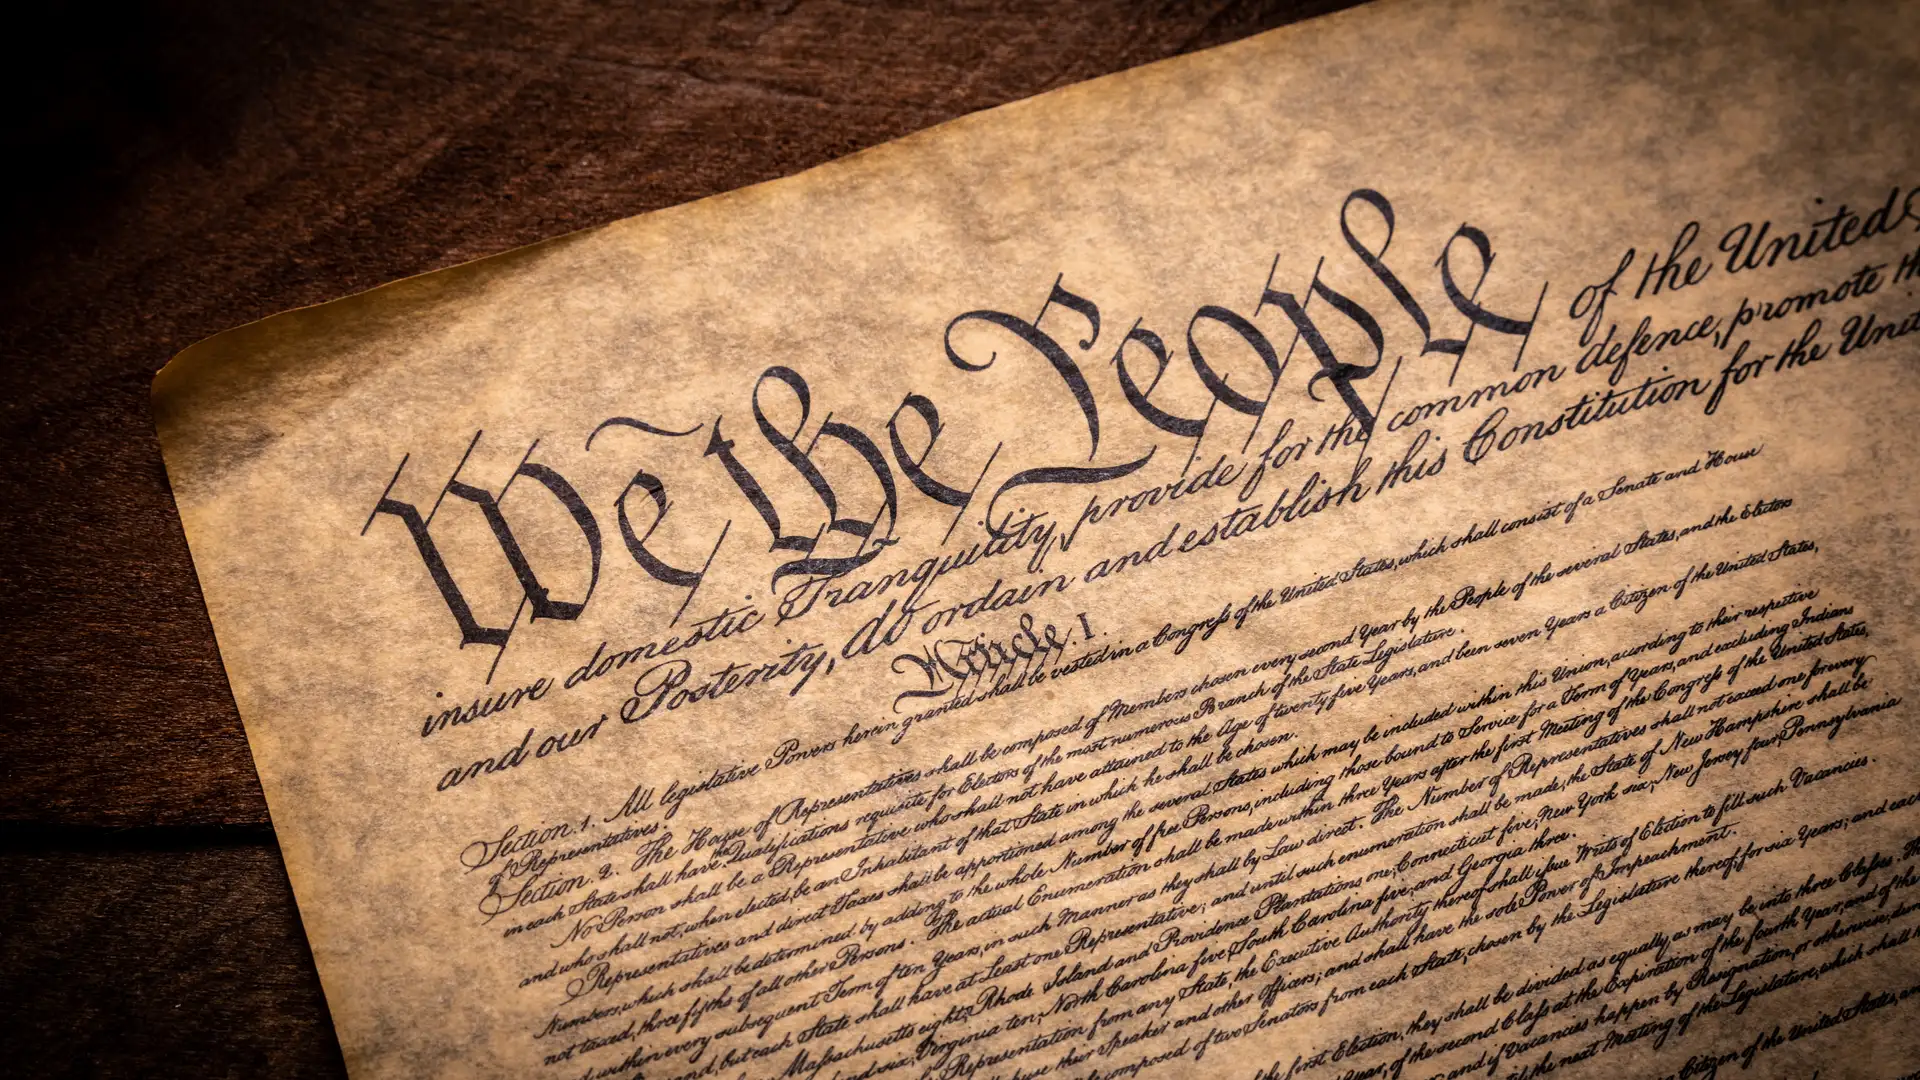 We the People of the United
insure domestic Tranquility, provide for the common defence, promote
and our Posterity, do ordain and establish this Constitution for the
Article. I.
Section. 1. All legislative Powers herein granted shall be vested in a Congress of the United States, which shall consist of a Senate and House
of Representatives.
Section. 2. The House of Representatives shall be composed of Members chosen every second Year by the People of the several States, and the Electors
in each State shall have the Qualifications requisite for Electors of the most numerous Branch of the State Legislature.
No Person shall be a Representative who shall not have attained to the Age of twenty five Years, and been seven Years a Citizen of the United States,
and who shall not, when elected, be an Inhabitant of that State in which he shall be chosen.
Representatives and direct Taxes shall be apportioned among the several States which may be included within this Union, according to their respective
Numbers, which shall be determined by adding to the whole Number of free Persons, including those bound to Service for a Term of Years, and excluding Indians
not taxed, three fifths of all other Persons. The actual Enumeration shall be made within three Years after the first Meeting of the Congress of the United States,
within every subsequent Term of ten Years, in such Manner as they shall by Law direct. The Number of Representatives shall not exceed one for every
and, but each State shall have at Least one Representative; and until such enumeration shall be made, the State of New Hampshire shall be
Massachusetts eight, Rhode Island and Providence Plantations one, Connecticut five, New York six, New Jersey four, Pennsylvania
six, Virginia ten, North Carolina five, South Carolina five, and Georgia three.
Representation from any State, the Executive Authority thereof shall issue Writs of Election to fill such Vacancies.
their Speaker and other Officers; and shall have the sole Power of Impeachment.
composed of two Senators from each State, chosen by the Legislature thereof, for six Years; and each
the first Election, they shall be divided as equally as may be into three Classes.
Year, of the second Class at the Expiration of the fourth Year, and of the
and if Vacancies happen by Resignation, or otherwise,
the next Meeting of the Legislature, which shall
a Citizen of the United States, and